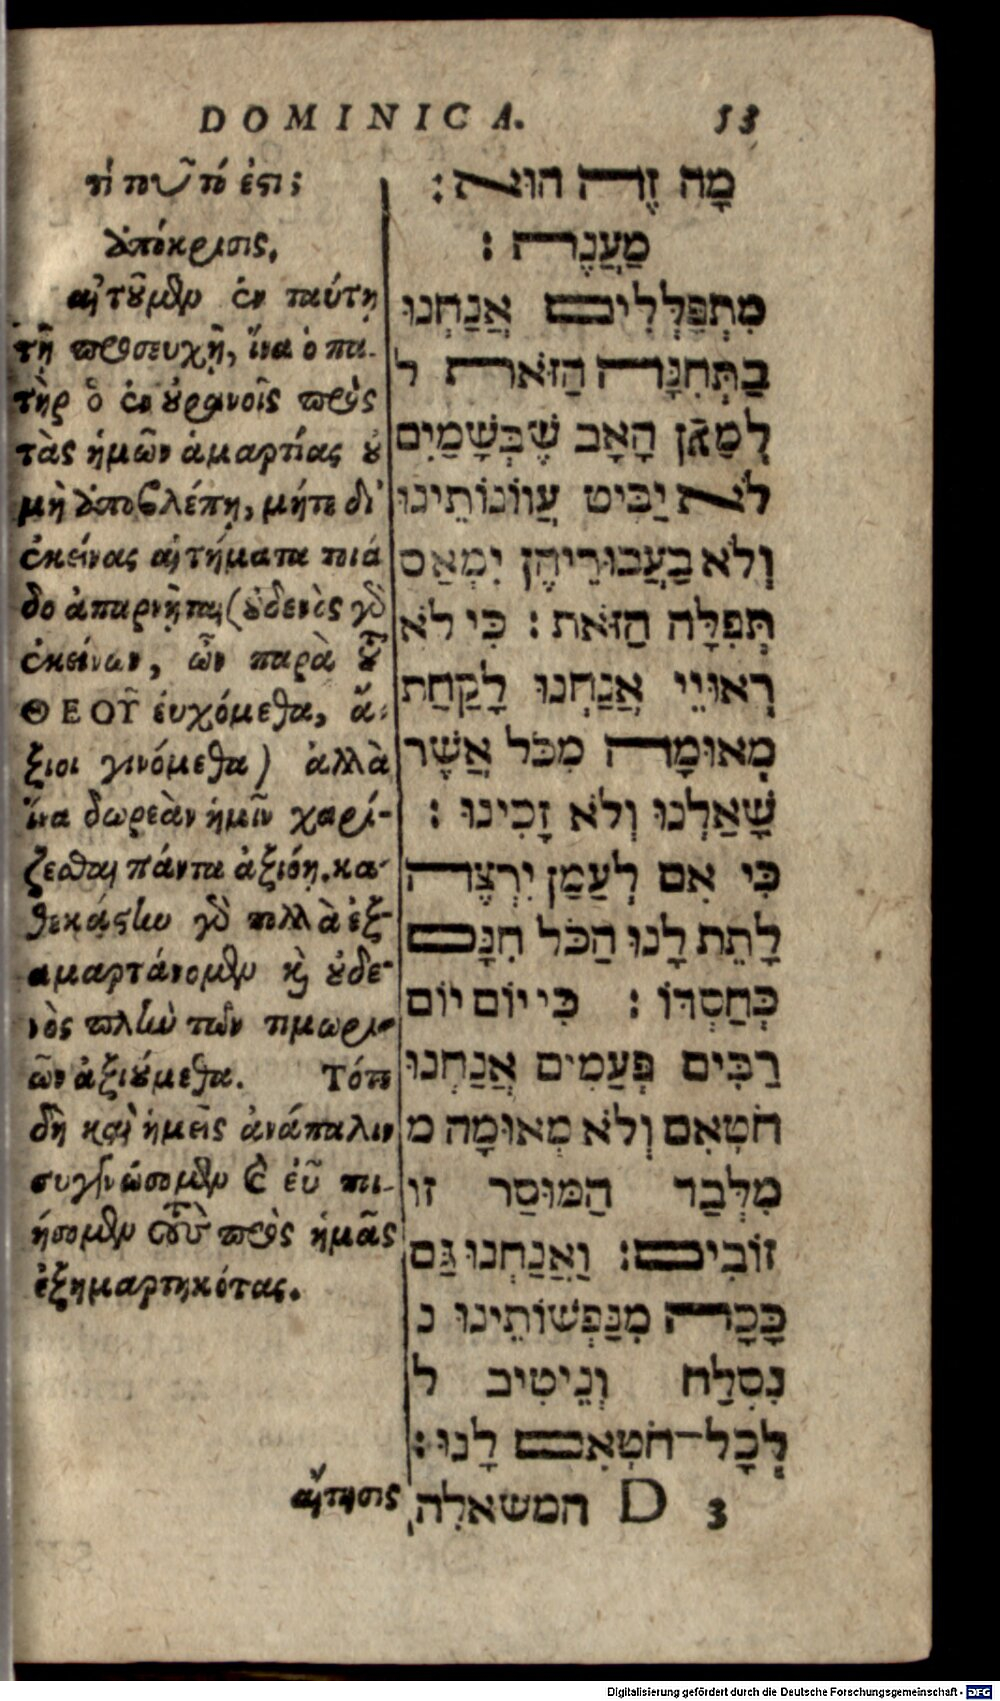 DOMINICA. 53
τί τοῦτό ἐστι;
ἀπόκρισις.
αἰτοῦμεν ἐν ταύτῃ
τῇ προσευχῇ, ἵνα ὁ πα-
τὴρ ὁ ἐν οὐρανοῖς πρὸς
τὰς ἡμῶν ἁμαρτίας οὐ
μὴ ἀποβλέπῃ, μήτε δι'
ἐκείνας αἰτήματα
ἐκείνων, ὧν παρὰ τοῦ
ΘΕΟΥ͂ ἐυχόμεθα, ἄ-
ξιοι γινόμεθα) ἀλλὰ
ἵνα δωρεὰν ἡμῖν χαρί-
ζεσθαι πάντα ἀξιόῃ. κα-
θεκάστην γὸ πολλὰ ἐξ-
αμαρτάνομεν καὶ οὐδε-
νὸς πλὴν τῶν τιμωρι-
ῶν ἀξιούμεθα. Τότε
δὴ καὶ ἡμεῖς ἀνάπαλιν
συγγνώσομεν καὶ εὖ ποι-
ήσομεν τοὺς πρὸς ἡμᾶς
ἐξημαρτηκότας.
αἴτησις
מָה זֶה הוּא:
מַעֲנֶה:
מִתְפַּלְּלִים אֲנַחְנוּ
בַתְּחִנָּה הַזֹּאת ל
לְמַעַן הָאָב שֶׁבְּשָׁמַיִם
לֹא יַבִּיט עֲווֹנוֹתֵינוּ
וְלֹא בַעֲבוּרֵיהֶן יִמְאַס
תְּפִלָּה הַזֹּאת: כִּי לֹא
רְאוּיֵי אֲנַחְנוּ לָקַחַת
מְאוּמָה מִכֹּל אֲשֶׁר
שָׁאַלְנוּ וְלֹא זָכִינוּ:
כִּי אִם לְעַמַן יִרְצֶה
לָתֵת לָנוּ הַכֹּל חִנָּם
כְּחַסְדּוֹ: כִּי יוֹם יוֹם
רַבִּים פְּעַמִים אֲנַחְנוּ
חֹטְאִם וְלֹא מְאוּמָה מ
מִלְּבַד הַמּוּסַר זו
זוֹכִים: וַאֲנַחְנוּ גַּם
כָּכָה מִנַּפְשׁוֹתֵינוּ נ
נִסְלַח וְנֵיטִיב ל
לְכָל־חֹטְאִם לָנוּ:
D 3 המשאלה
Digitalisierung gefördert durch die Deutsche Forschungsgemeinschaft - DFG